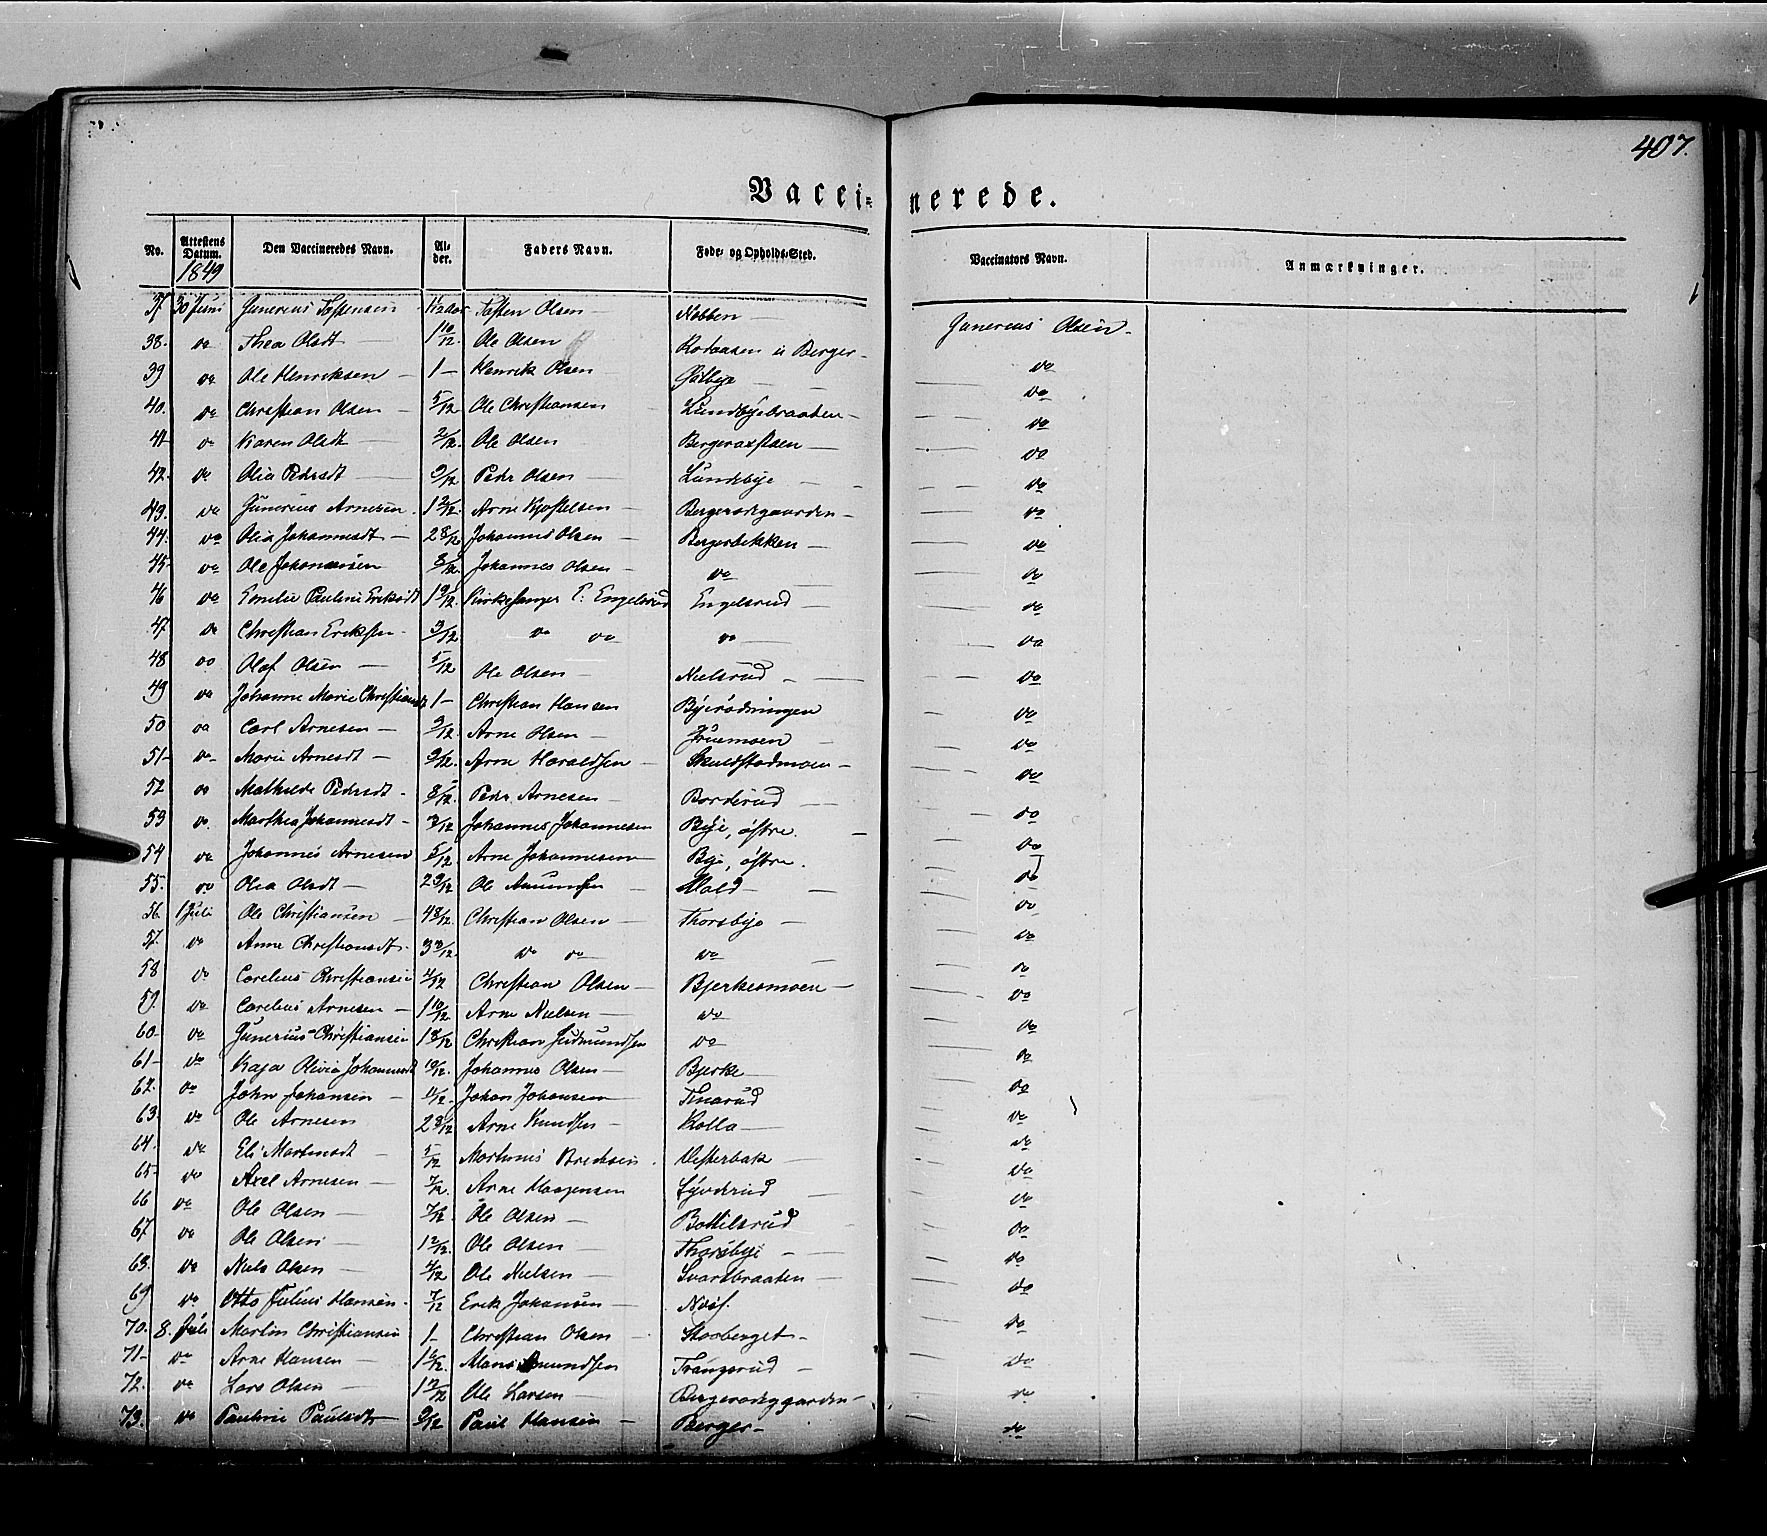 407.
Vacci-nerede.
No. Attestens Datum. Den Vaccineredes Navn. Alder. Faders Navn. Føde- og Opholds-Sted. Vaccinators Navn. Anmærkninger.
1849
37 30 Juni Gunerius Tostensen Tosten Olsen Nabben Gunerius Olsen
38. do Thea Olsdt 1 10/12 Ole Olsen Berger do
39 do Ole Henriksen 1 Henrik Olsen do
40. do Christian Olsen 5/12 Ole Christiansen Lundbyebraaten do
41 do Karen Olsdt 2/12 Ole Olsen do
42. do Olia Pedersdt 9/12 Peder Olsen Lundbye do
43. do Gunerius Arnesen 1 2/12 Arne Kjostelsen Bergerødegaarden do
44. do Olia Johannesdt 2 8/12 Johannes Olsen Bergerbekken do
45 do Ole Johannesen 8/12 Johannes Olsen do do
46 do Emilie Pauline Eriksdt 1 9/12 Kirkesanger E. Engelsrud Engelsrud do
47 do Christian Eriksen 3/12 do do do do
48 do Olaf Olsen 5/12 Ole Olsen Nielsrud do
49 do Johanne Marie Christiansdt 1 Christian Hansen Byerødningen do
50 do Carl Arnesen 9/12 Arne Olsen do
51 do Marie Arnesdt 9/12 Arne Haraldsen Skuldstadmoen do
52 do Mathilde Pedersdt 8/12 Peder Arnesen Borderud do
53 do Marthea Johannesdt 9/12 Johannes Johannesen Bye, østre. do
54 do Johannes Arnesen 5/12 Arne Johannesen Bye, østre. do
55. do Olea Olsdt 2 9/12 Ole Amundsen Hold do
56. 1 Juli Ole Christiansen 4 8/12 Christian Olsen Thorsbye do
57. do Anne Christiansdt 3 3/12 do do do do
58 do Carelius Christiansen 4/12 Christian Olsen Bjerkesmoen do
59. do Carelius Arnesen 1 10/12 Arne Nielsen do do
60 do Gunerius Christiansen 1 8/12 Christian Gudmundsen do do
61 do Kaja Olivia Johannesdt 10/12 Johannes Olsen Bjerke do
62. do John Johansen 11/12 Johan Johansen do
63 do Ole Arnesen 2 9/12 Arne Knudsen Kolla do
64. do Eli Martinusdt 5/12 Martinus Bredesen Vesterbak do
65 do Axel Arnesen 7/12 Arne Haagensen Lyderud do
66 do Ole Olsen 7/12 Ole Olsen Bottilsrud do
67 do Ole Olsen 1 2/12 Ole Olsen Thorsbye do
68. do Niels Olsen 4/12 Ole Nielsen Svartbraaten do
69 do Otto Julius Hansen 7/12 Erik Johansen do
70. 8. Juli Martin Christiansen 1 Christian Olsen Stoeberget do
71 do Arne Hansen 1 Hans Amundsen Trangsrud do
72. do Lars Olsen 1 2/12 Ole Larsen Bergerødeggarden do
73. do Pauline Paulsdt 9/12 Paul Hansen Berger do